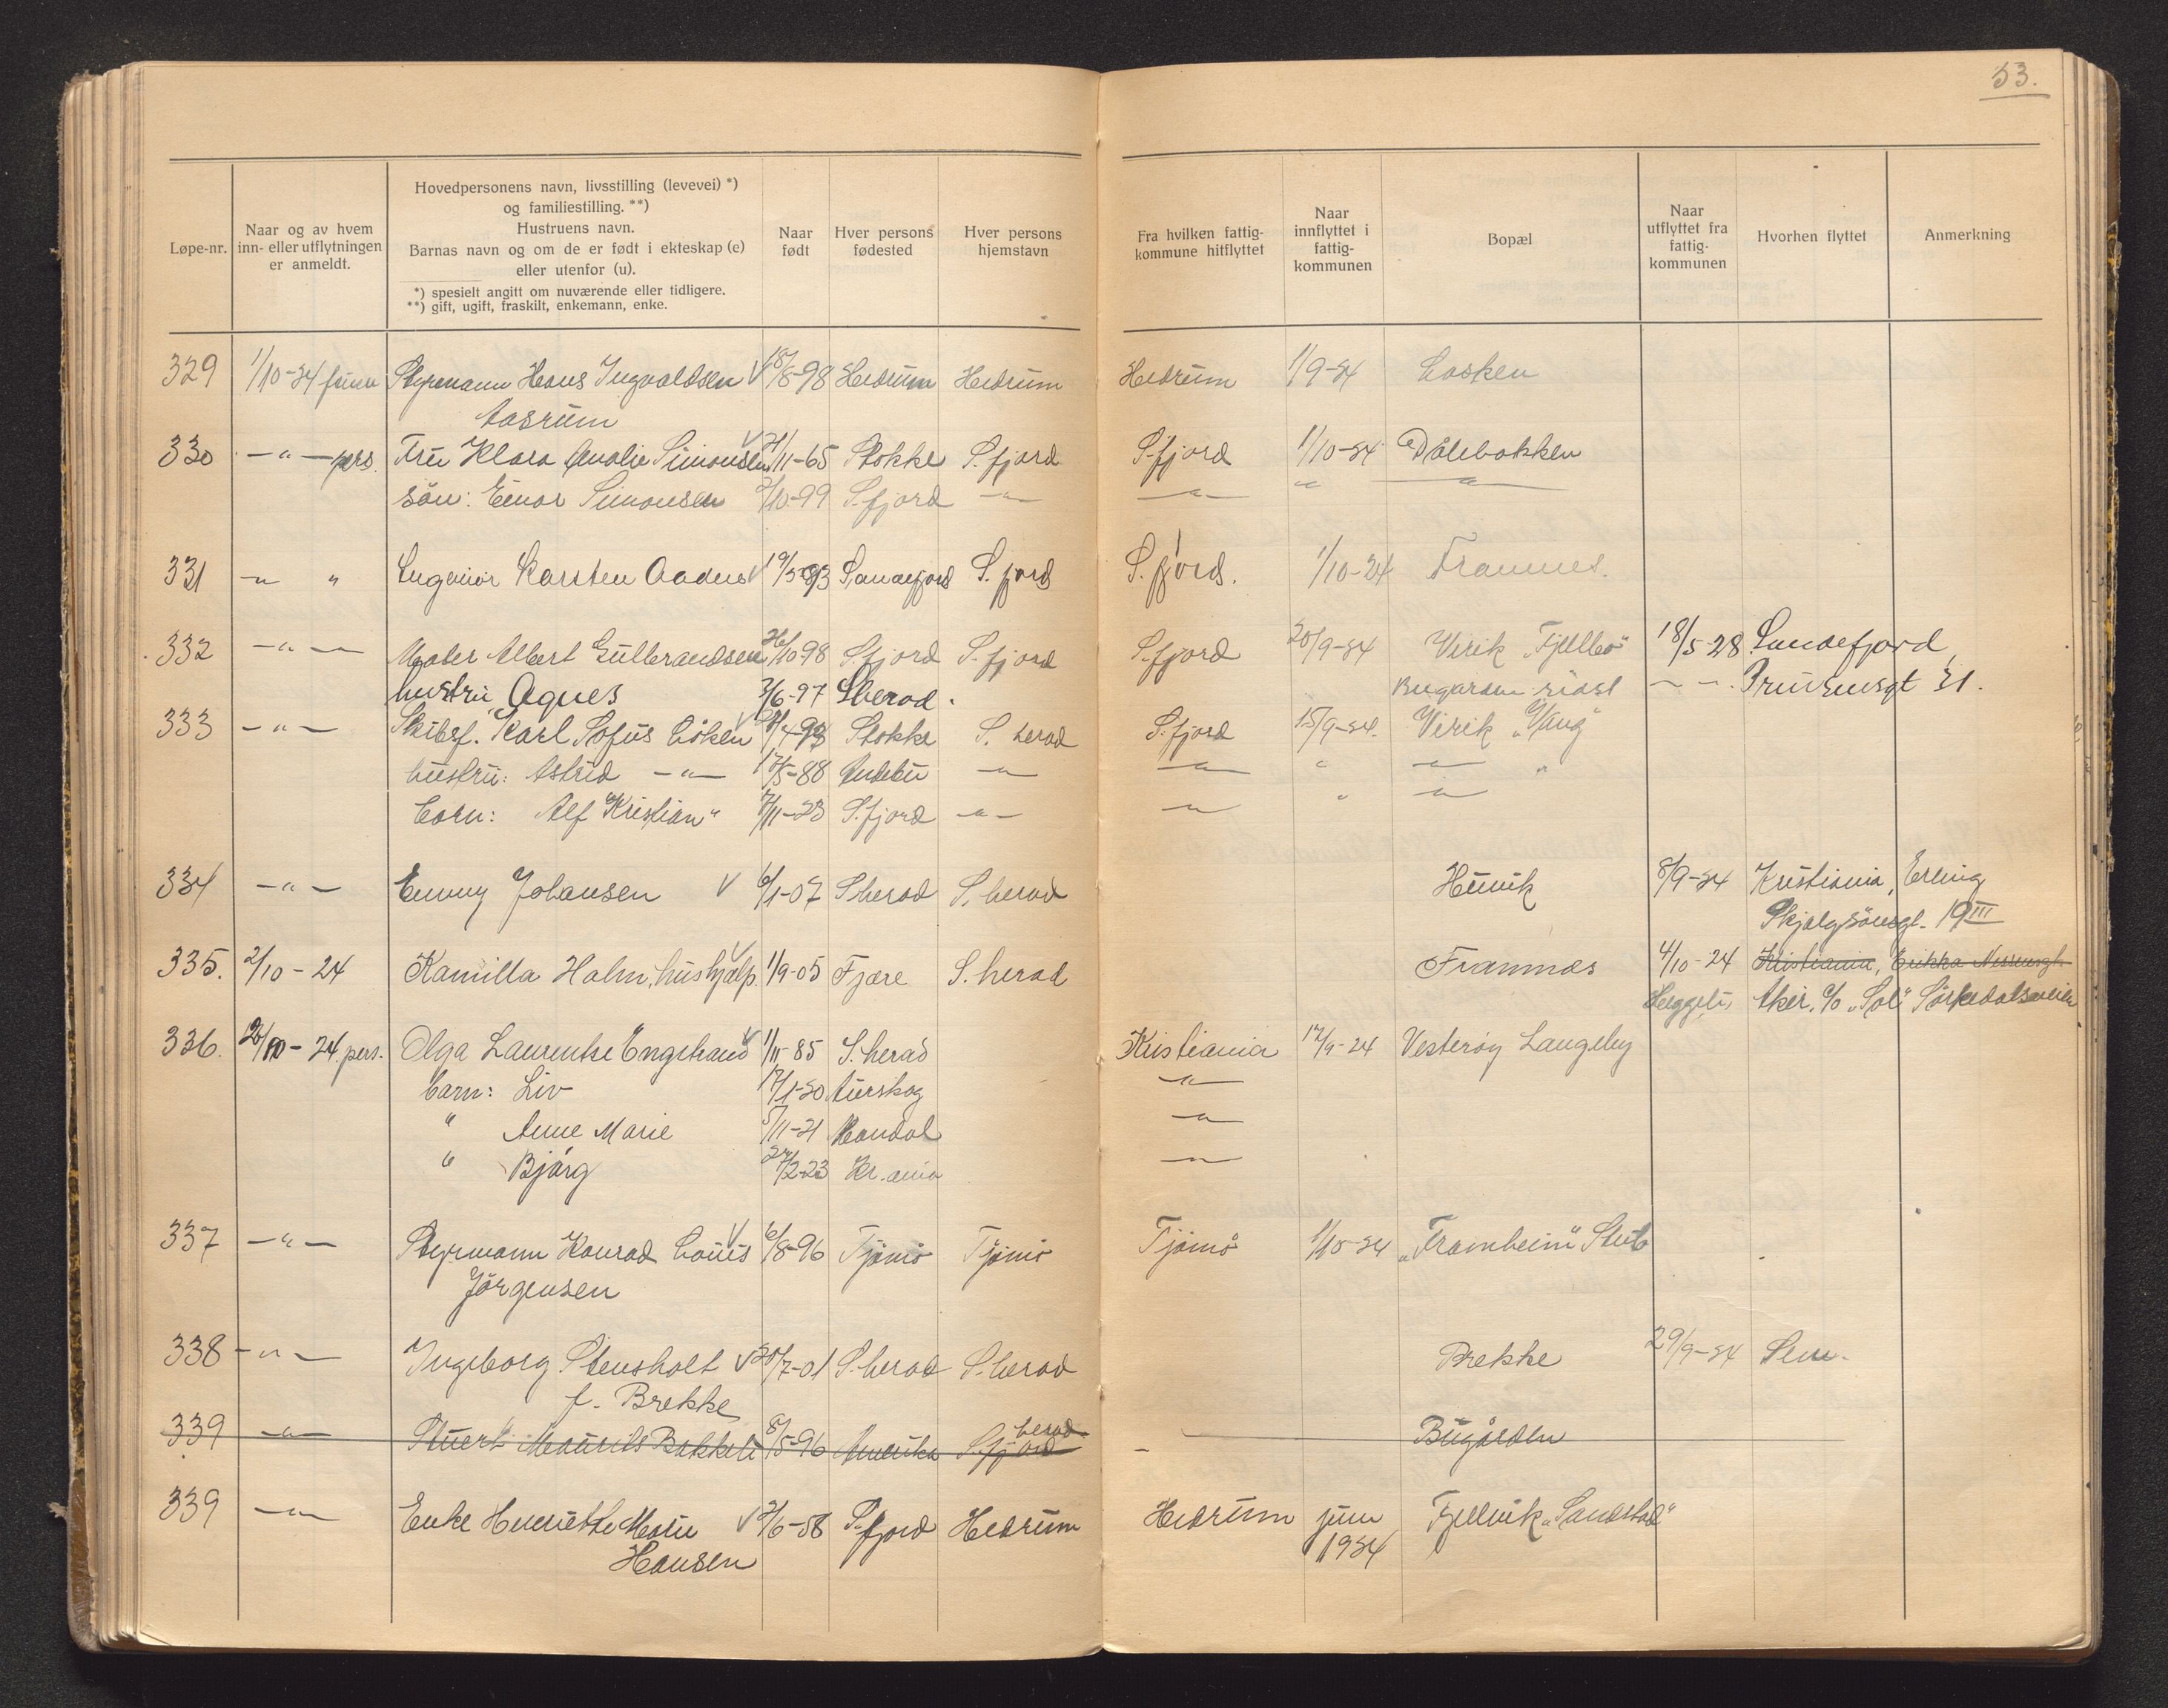 53.
Løpe-nr.
Naar og av hvem
inn- eller utflytningen
er anmeldt.
Hovedpersonens navn, livsstilling (levevei) *)
og familiestilling. **)
Hustruens navn.
Barnas navn og om de er født i ekteskap (e)
eller utenfor (u).
*) spesielt angitt om nuværende eller tidligere.
**) gift, ugift, fraskilt, enkemann, enke.
Naar
født
Hver persons
fødested
Hver persons
hjemstavn
Fra hvilken fattig-
kommune hitflyttet
Naar
innflyttet i
fattig-
kommunen
Bopæl
Naar
utflyttet fra
fattig-
kommunen
Hvorhen flyttet
Anmerkning
329 1/10-24 Styrmann Hans Ingvaldsen V 18/8-98 Hedrum Hedrum Hedrum 1/9-24 Løkken
Aasrum
330 -"- pers. Fru Klara Amalie Simonsen V 21/11-65 Stokke S.fjord S.fjord 1/10-24 Dølebakken
søn: Einar Simonsen 2/10-99 S.fjord -"- -"- " -"-
331 -" " Ingeniør Karsten Aadne V 19/5-93 Sandefjord S.fjord S.fjord. 1/10-24 Framnes.
332 -"- Maler Albert Gulbrandsen 26/10-98 S.fjord S.fjord S.fjord 20/9-24 Virik „Fjellbo" 18/5-28 Sandefjord,
hustru Agnes 3/6-97 S.herad. Bugården -"- Prinsensgt 31.
333 -"- Skibsf. Karl Sofus Løken V 4-93 Stokke S. herad S.fjord 15/9-24. Virik „Vang"
hustru: Astrid -"- 17/5-88 Andebu -"- -"- " -"- "
barn: Alf Kristian " 7/11-23 S.fjord -"- -"- " -"-
334 -"- Emmy Johansen V 6/1-07 S.herad S.herad Hunik 8/9-24 Kristiania, Erling
Skjalgsønsgt. 19 III
335. 2/10-24 Kamilla Holm, hushjælp. V 1/9-05 Fjære S.herad Framnes 4/10-24 Kristiania, Erikka Nissensgt.
Heggeli, Aker, c/o „Sol" Sørkedalsveien
336. 2/10-24 pers. Olga Laurentse Engstrand V 1/11-85 S.herad Kristiania 17/9-24 Vesterøy Langeby
barn: Liv 17/1-20 Aurskog -"-
" Anne Marie 5/11-21 Mandal -"-
" Bjørg 24/2-23 Kr.ania -"-
337 -"- Styrmann Konrad Louis V 6/8-96 Tjømø Tjømø Tjømø 1/10-24 „Framheim" Stub
Jørgensen
338 -"- Ingeborg Stensholt V 30/7-01 S.herad S.herad Brekke 29/9-24 Sem.
f. Brekke
339 -"- Stuert Maurits Bakken 8/5-96 Amerika S.fjord herad - Bugården
339 -"- Enke Henriette Marie V 21/6-58 S.fjord Hedrum Hedrum juni Fjellvik „Sandstad"
Hansen 1924